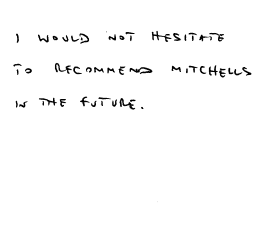 I WOULD NOT HESITATE
TO RECOMMEND MITCHELLS
IN THE FUTURE.